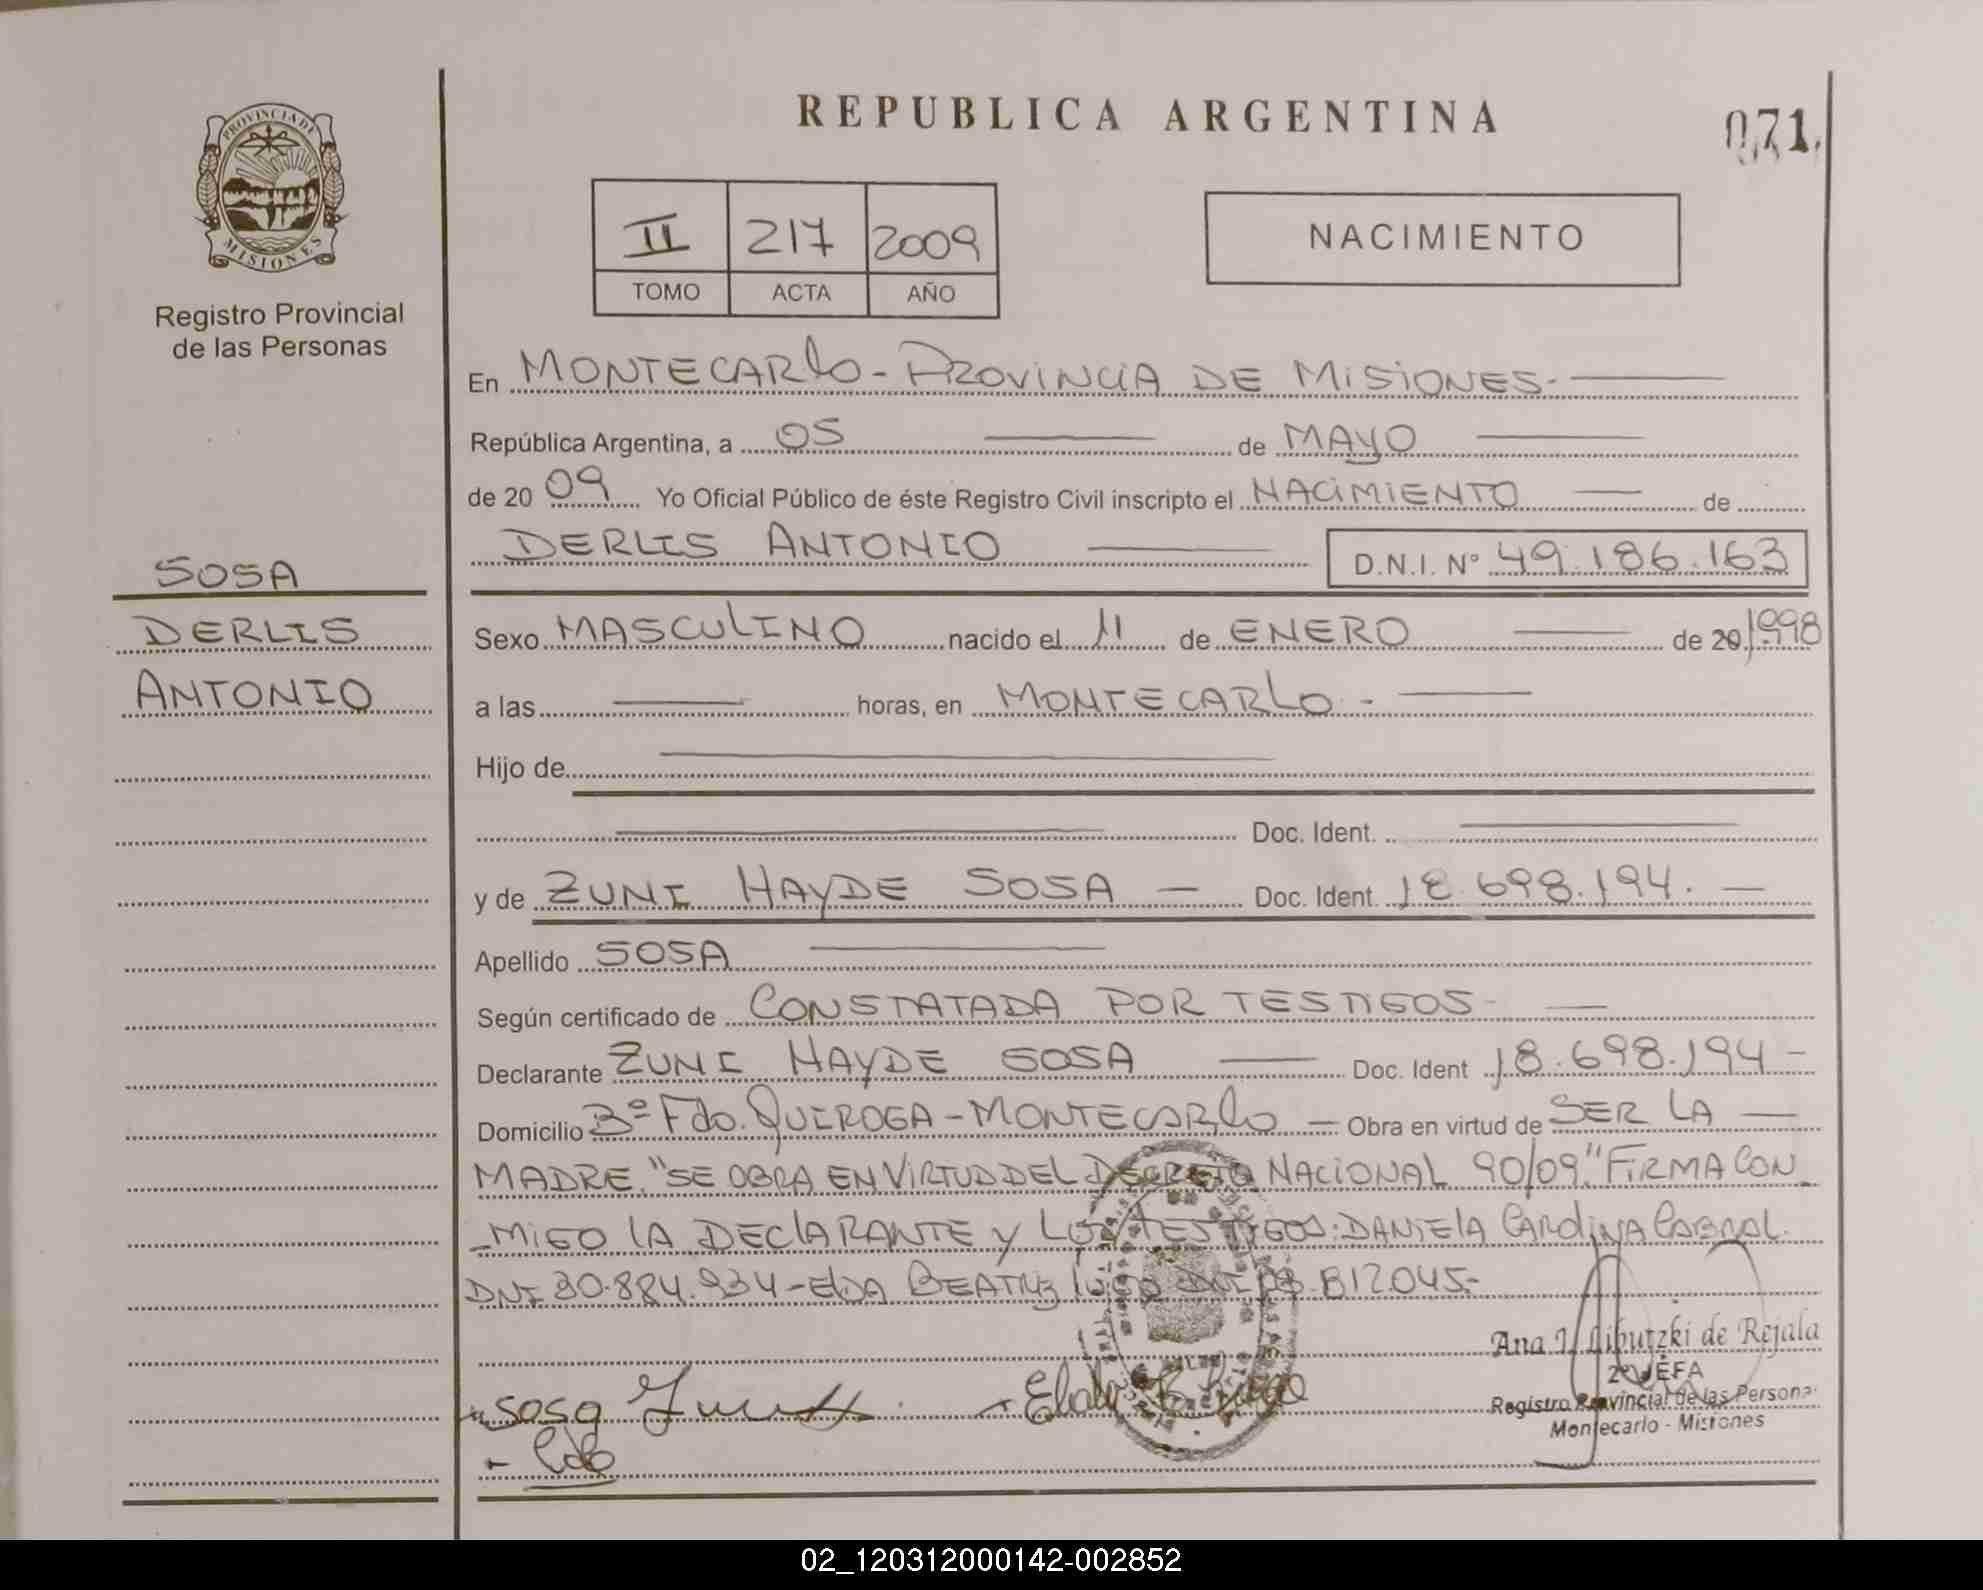 REPUBLICA ARGENTINA
071
PROVINCIA DE
MISIONES
Registro Provincial
de las Personas
II 217 2009
TOMO ACTA AÑO
NACIMIENTO
En MONTECARLO - PROVINCIA DE MISIONES.
República Argentina, a 05 de MAYO
de 20 09 Yo Oficial Público de éste Registro Civil inscripto el NACIMIENTO de
DERLIS ANTONIO D.N.I. N° 49.186.163
SOSA
DERLIS
ANTONIO
Sexo MASCULINO nacido el 11 de ENERO de 20 1998
a las horas, en MONTECARLO. -
Hijo de
Doc. Ident.
y de ZUNI HAYDE SOSA — Doc. Ident. 18.698.194. —
Apellido SOSA
Según certificado de CONSTATADA POR TESTIGOS -
Declarante ZUNI HAYDE SOSA Doc. Ident 18.698.194 -
Domicilio Bº Fdo. QUIROGA - MONTECARLO — Obra en virtud de SER LA —
MADRE. "SE OBRA EN VIRTUD DEL DECRETO NACIONAL 90/09." FIRMA CON
-MIGO LA DECLARANTE Y LOS TESTIGOS: DANIELA CAROLINA CABRAL.
DNI 30.884.934 - ELDA BEATRIZ LUGO DNI B12.045.-
Sosa
Elda B Lugo
Ana I. Libutzki de Rejala
2º JEFA
Registro Provincial de las Persona
Montecarlo - Misiones
02_120312000142-002852